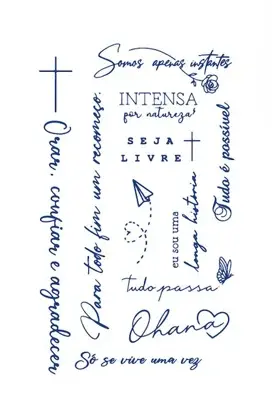 Somos apenas instantes
INTENSA
por natureza
SEJA
LIVRE
Tudo é possível
Orar, confiar e agradecer
Para todo fim um recomeço.
eu sou uma
longa história
tudo passa
Ohana
Só se vive uma vez